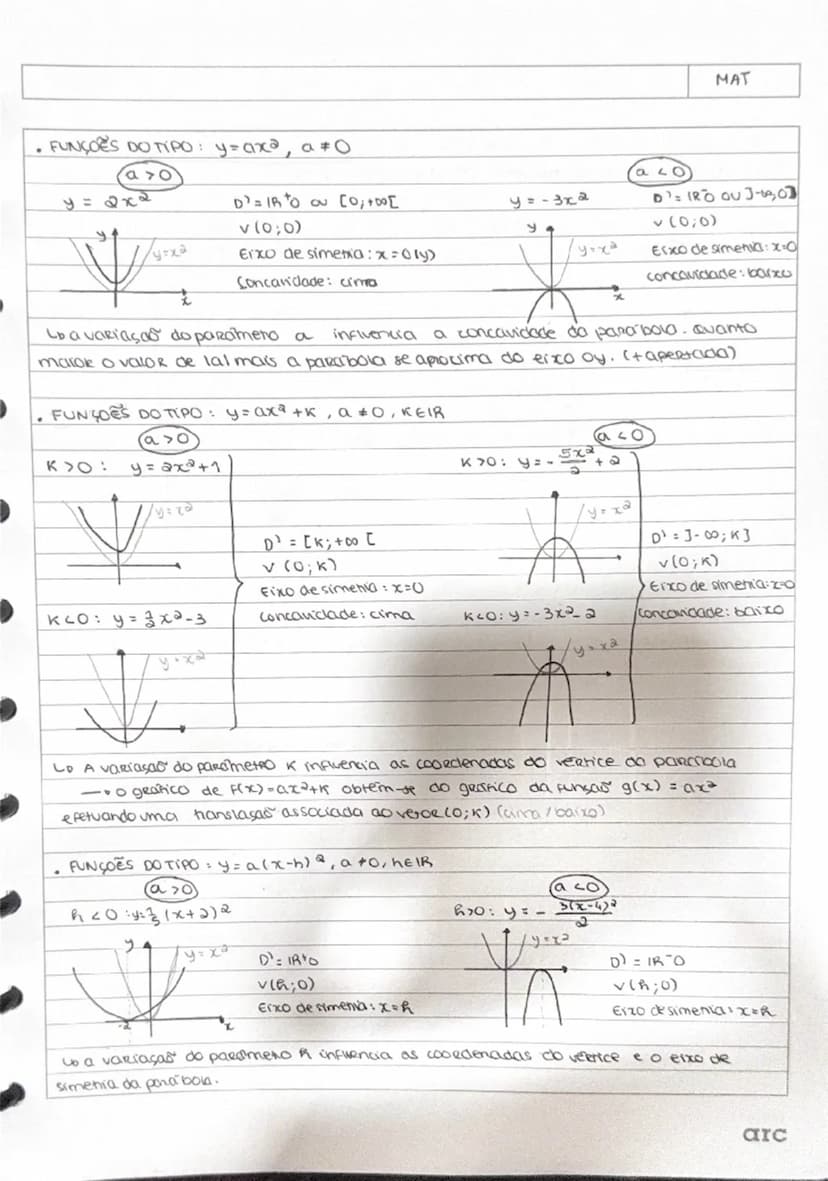 MAT
. FUNÇÕES DO TIPO: y=ax², a≠0
a>0
a<0
y = 2x²
D'=IR⁺0 ou [0;+∞[
V(0;0)
Eixo de simetria: x=0(y)
Concavidade: cima
y=x²
y
x
y = -3x²
D'= IR⁻0 OU ]-∞,0]
V(0;0)
Eixo de simetria: x=0
concavidade: baixo
y=x²
y
x
↳ a variação do parâmetro a influencia a concavidade da parábola. Quanto
maior o valor de |a| mais a parábola se aproxima do eixo Oy. (+ apertada)
. FUNÇÕES DO TIPO: y=ax²+K, a≠0, K∈IR
a>0
a<0
K>0: y=2x²+1
y=x²
K<0: y=1/2x²-3
y=x²
D' = [K;+∞[
V(0;K)
Eixo de simetria: x=0
Concavidade: cima
K>0: y=-5x²/2+2
y=x²
K<0: y=-3x²-2
y=x²
D'=]-∞;K]
V(0;K)
Eixo de simetria: x=0
Concavidade: baixo
↳ A variação do parâmetro K influencia as coordenadas do vértice da parábola
→ o gráfico de f(x)=ax²+K obtém-se do gráfico da função g(x)=ax²
efetuando uma translação associada ao vetor (0;K) (cima/baixo)
. FUNÇÕES DO TIPO: y=a(x-h)², a≠0, h∈IR
a>0
a<0
h<0: y=1/3(x+2)²
y=x²
y
-2
x
D'=IR⁺0
V(h;0)
Eixo de simetria: x=h
h>0: y=-3(x-4)²/2
y=x²
D'=IR⁻0
V(h;0)
Eixo de simetria: x=h
↳ a variação do parâmetro h influencia as coordenadas do vértice e o eixo de
simetria da parábola.
arc